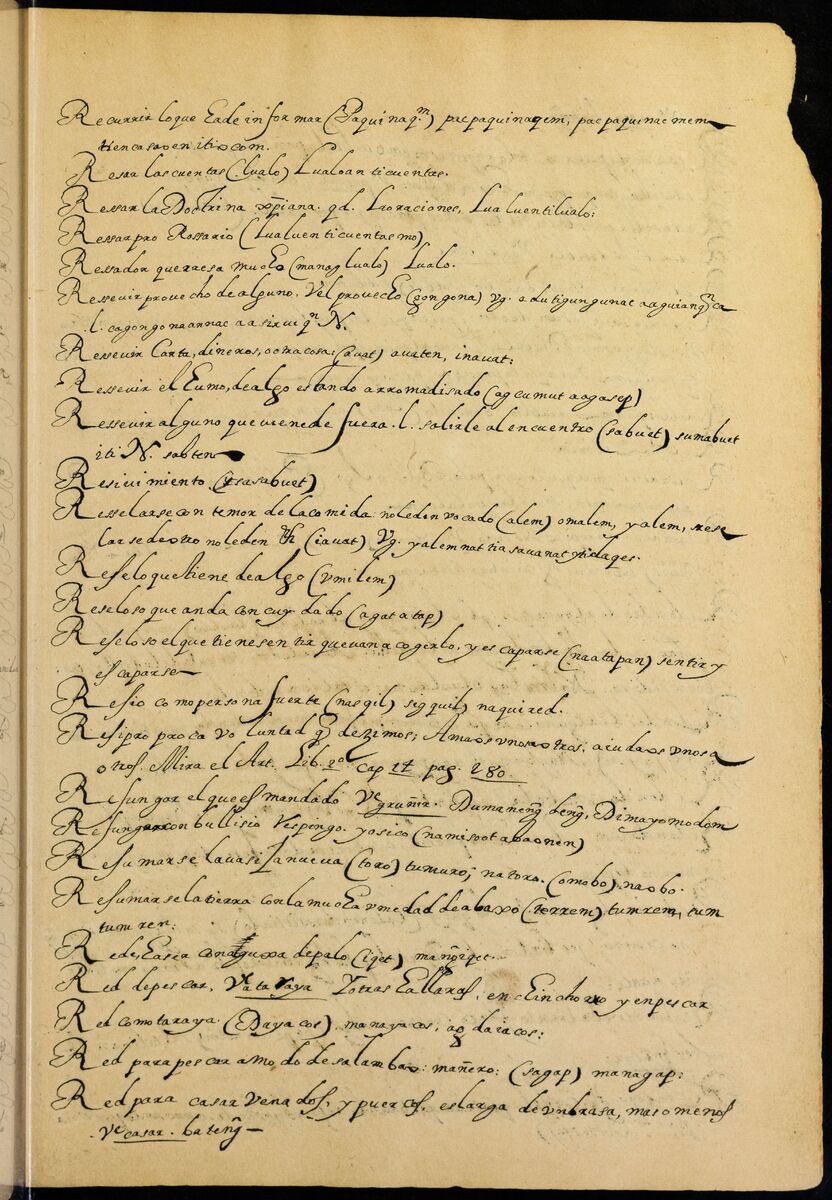 Recurrir lo que ha de informar (Paquinaq.m) pacpaquinaqem, pacpaquinac mem
tiencasaoen iti com.
Resar las cuentas (lualo) Lualoan ti cuentas.
Ressar la Doctrina xpiana. qd. L oraciones, Lualuen ti lualo:
Ressar pro Rossario (Lualuen ti cuentas mo)
Ressador que rresa mucho (manag lualo) Lualo.
Ressevir provecho de alguno, Vel provecho (gongona) Vg. adu ti gungunac
l. cagongonaannac N.
Ressevir Carta, dineros, o otra cosa: (avat) avaten, inavat:
Ressevir el humo, de algo estando arromadisado (agcumut aagasep)
Ressevir alguno que viene de fuera. l. salirle al encuentro (sabuet) sumabuet
iti N. sabten
Resivimiento (ysasabuet)
Resselarse con temor de la comida no le den vocado (alem) omalem, yalem, rese
larse de otro no le den (iavat) Vg. yalem nattia savanat ytidaqes.
Reselo que tiene de algo (vmilem)
Reseloso que anda con cuydado (agatatap)
Reseloso el que tiene sentir que van a cogerlo, y escaparse (naatapan) sentir y
escaparse
Resio como persona fuerte (nasgil) sigquil, naquired.
Resipro proca voluntad q dezimos; Amaos vnos a otros, aiudaos vnos a
otros. Mira el Art. Lib. 2o cap 17 pag. 180.
Resungar el que es mandado Ve gruñir. Dumaneng deng, Dimayomodom
Resungar con bullisio Vespingo. yosico (namisootabaonen)
Resumarse la vasija nueva (toro) tumuro; natoro. (omobo) naobo.
Resumarse la tierra con la mucha vmedad de abaxo (terrem) tumrem, tum
tumren:
Redes haser con aguxa de palo (iqet) mangiqet.
Red de pescar, Ve ataraya Y otras hallaras, en chinchoro y en pescar
Red como taraya (Dayacos) manayacos, ag daiacos:
Red para pescar a modo de salambao: mañero: (sagap) managap:
Red para casar venados, y puercos, es larga de vn brasa, mas o menos
Ve casar. bateng